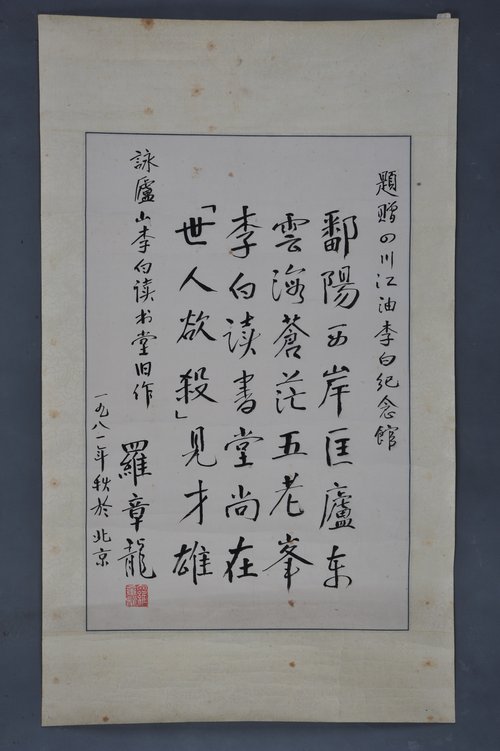 題贈四川江油李白纪念館
鄱陽西岸匡廬东
雲海蒼茫五老峯
李白读書堂尚在
「世人欲殺」見才雄
詠廬山李白读书堂旧作
一九八一年秋於北京
羅章龍